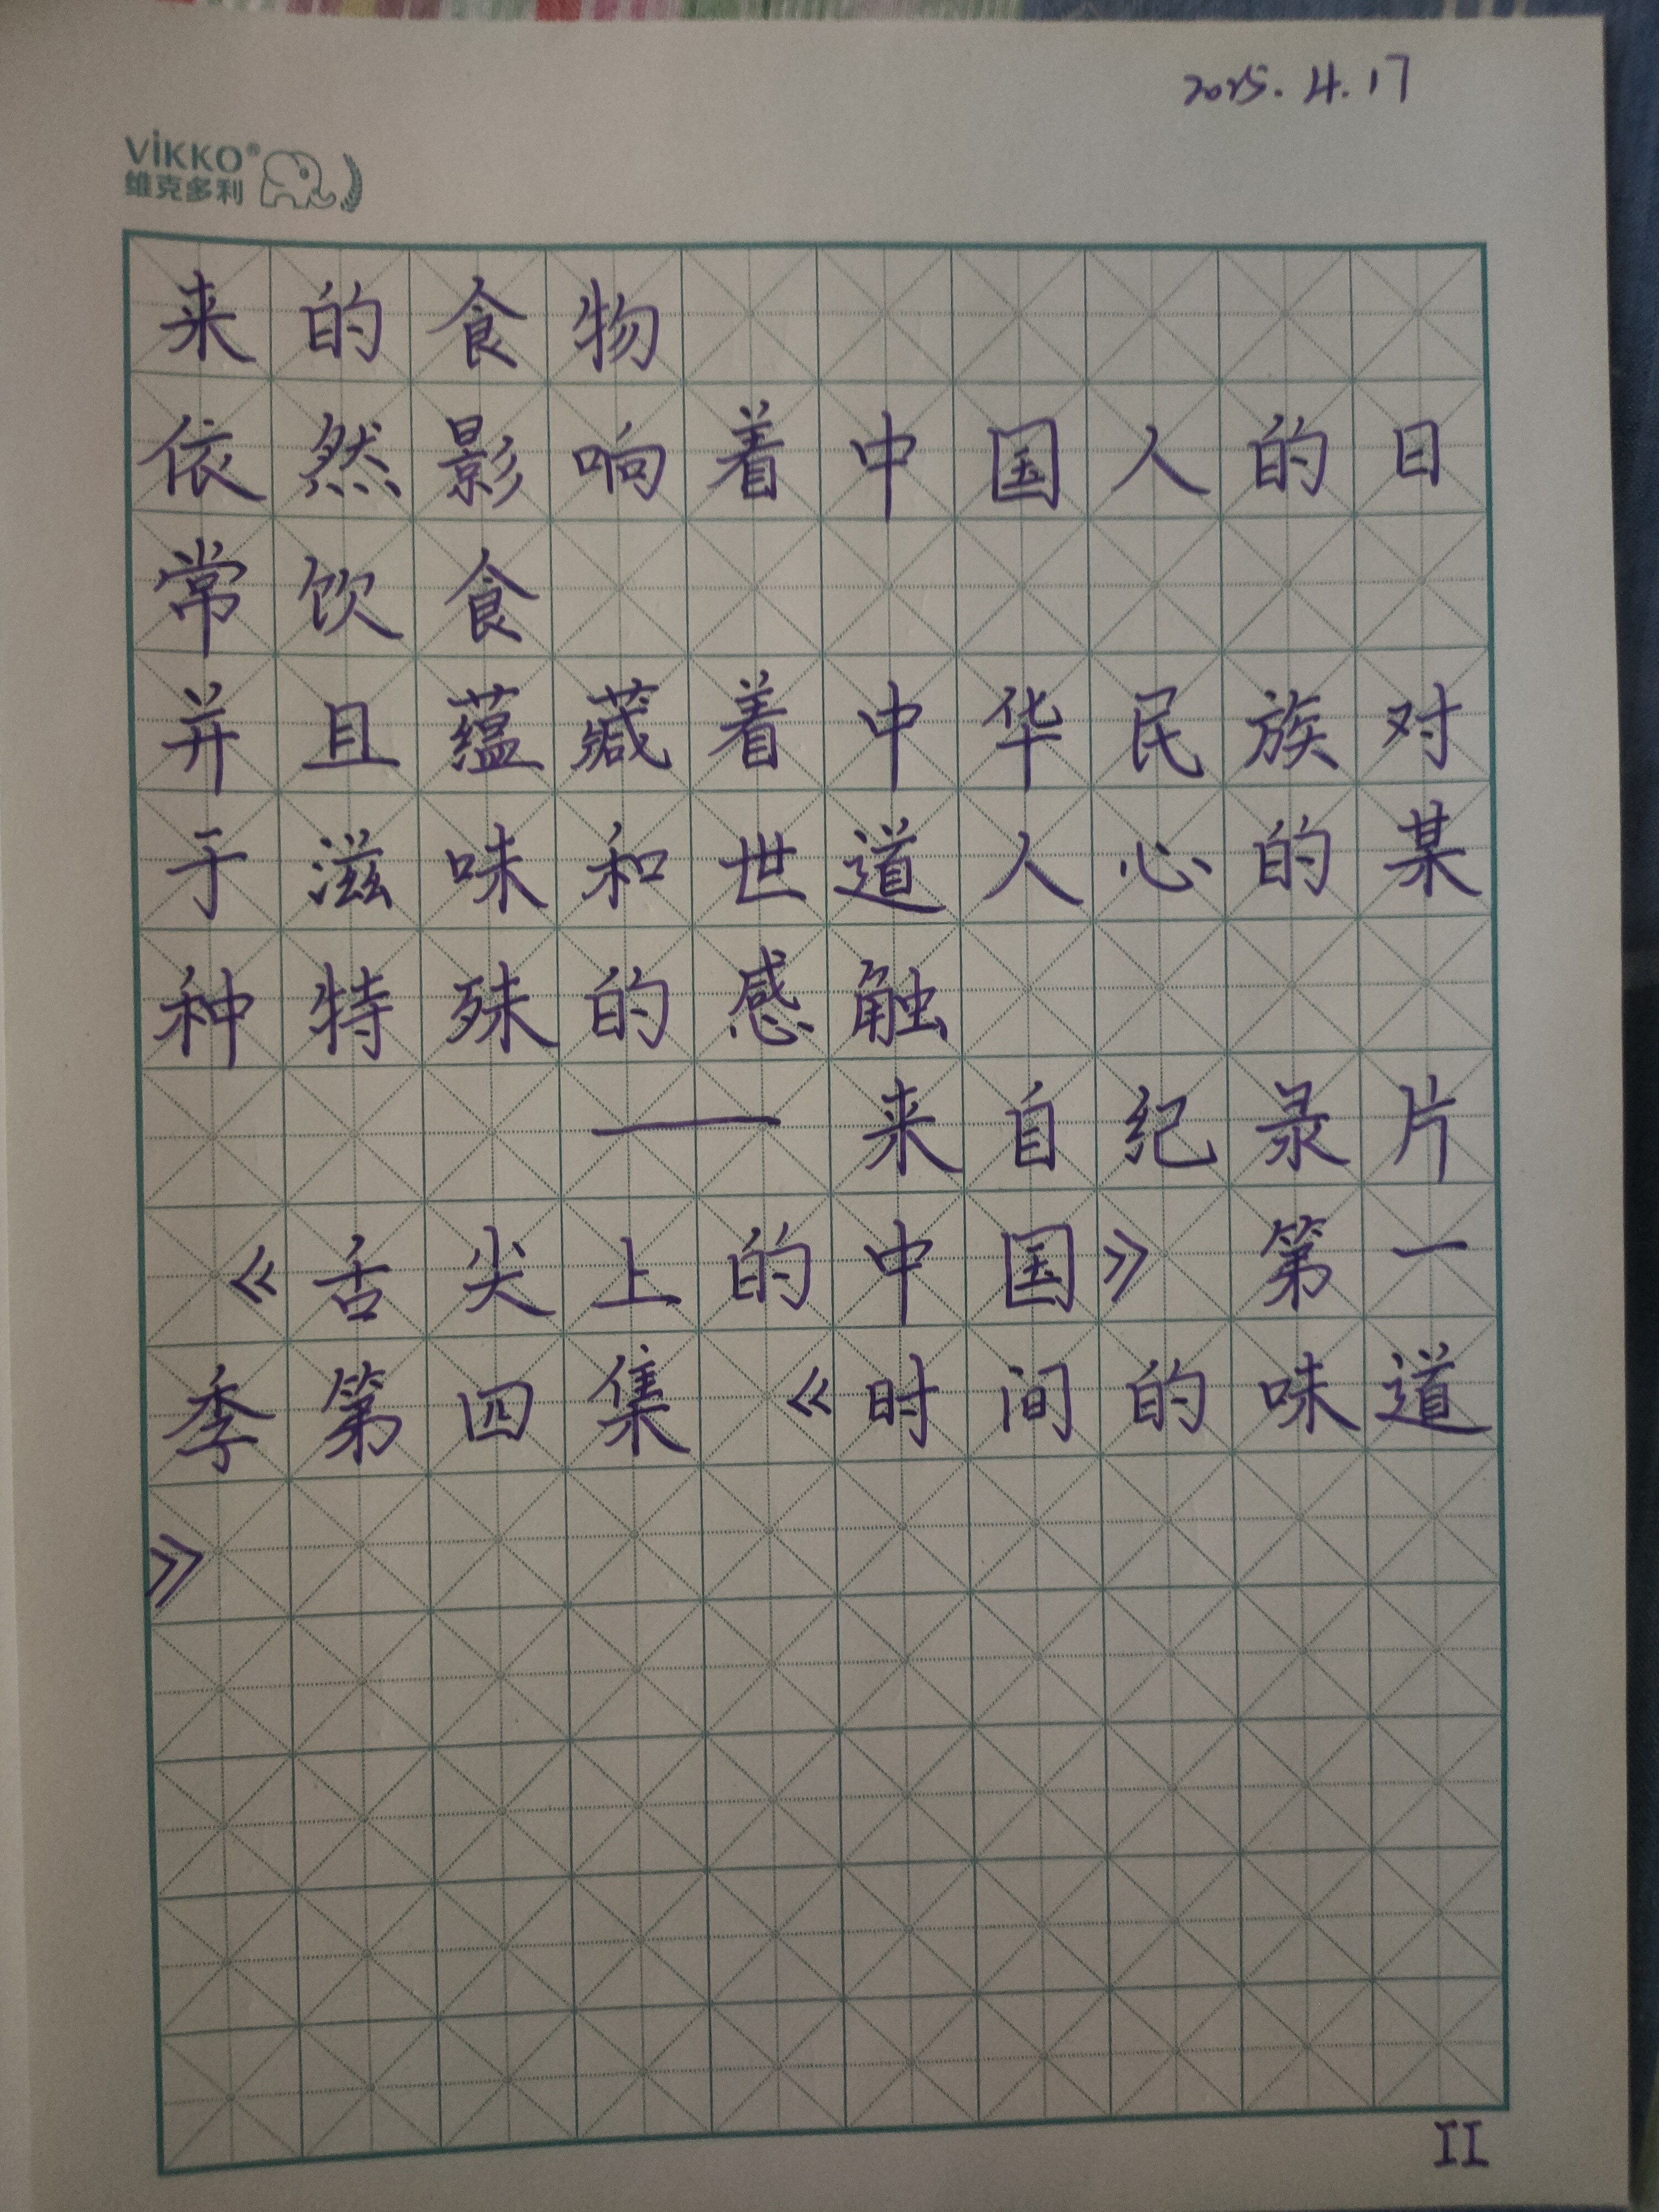 2025.4.17
ViKKO®
维克多利
来的食物
依然影响着中国人的日
常饮食
并且蕴藏着中华民族对
于滋味和世道人心的某
种特殊的感触
——来自纪录片
《舌尖上的中国》第一
季第四集《时间的味道
》
II